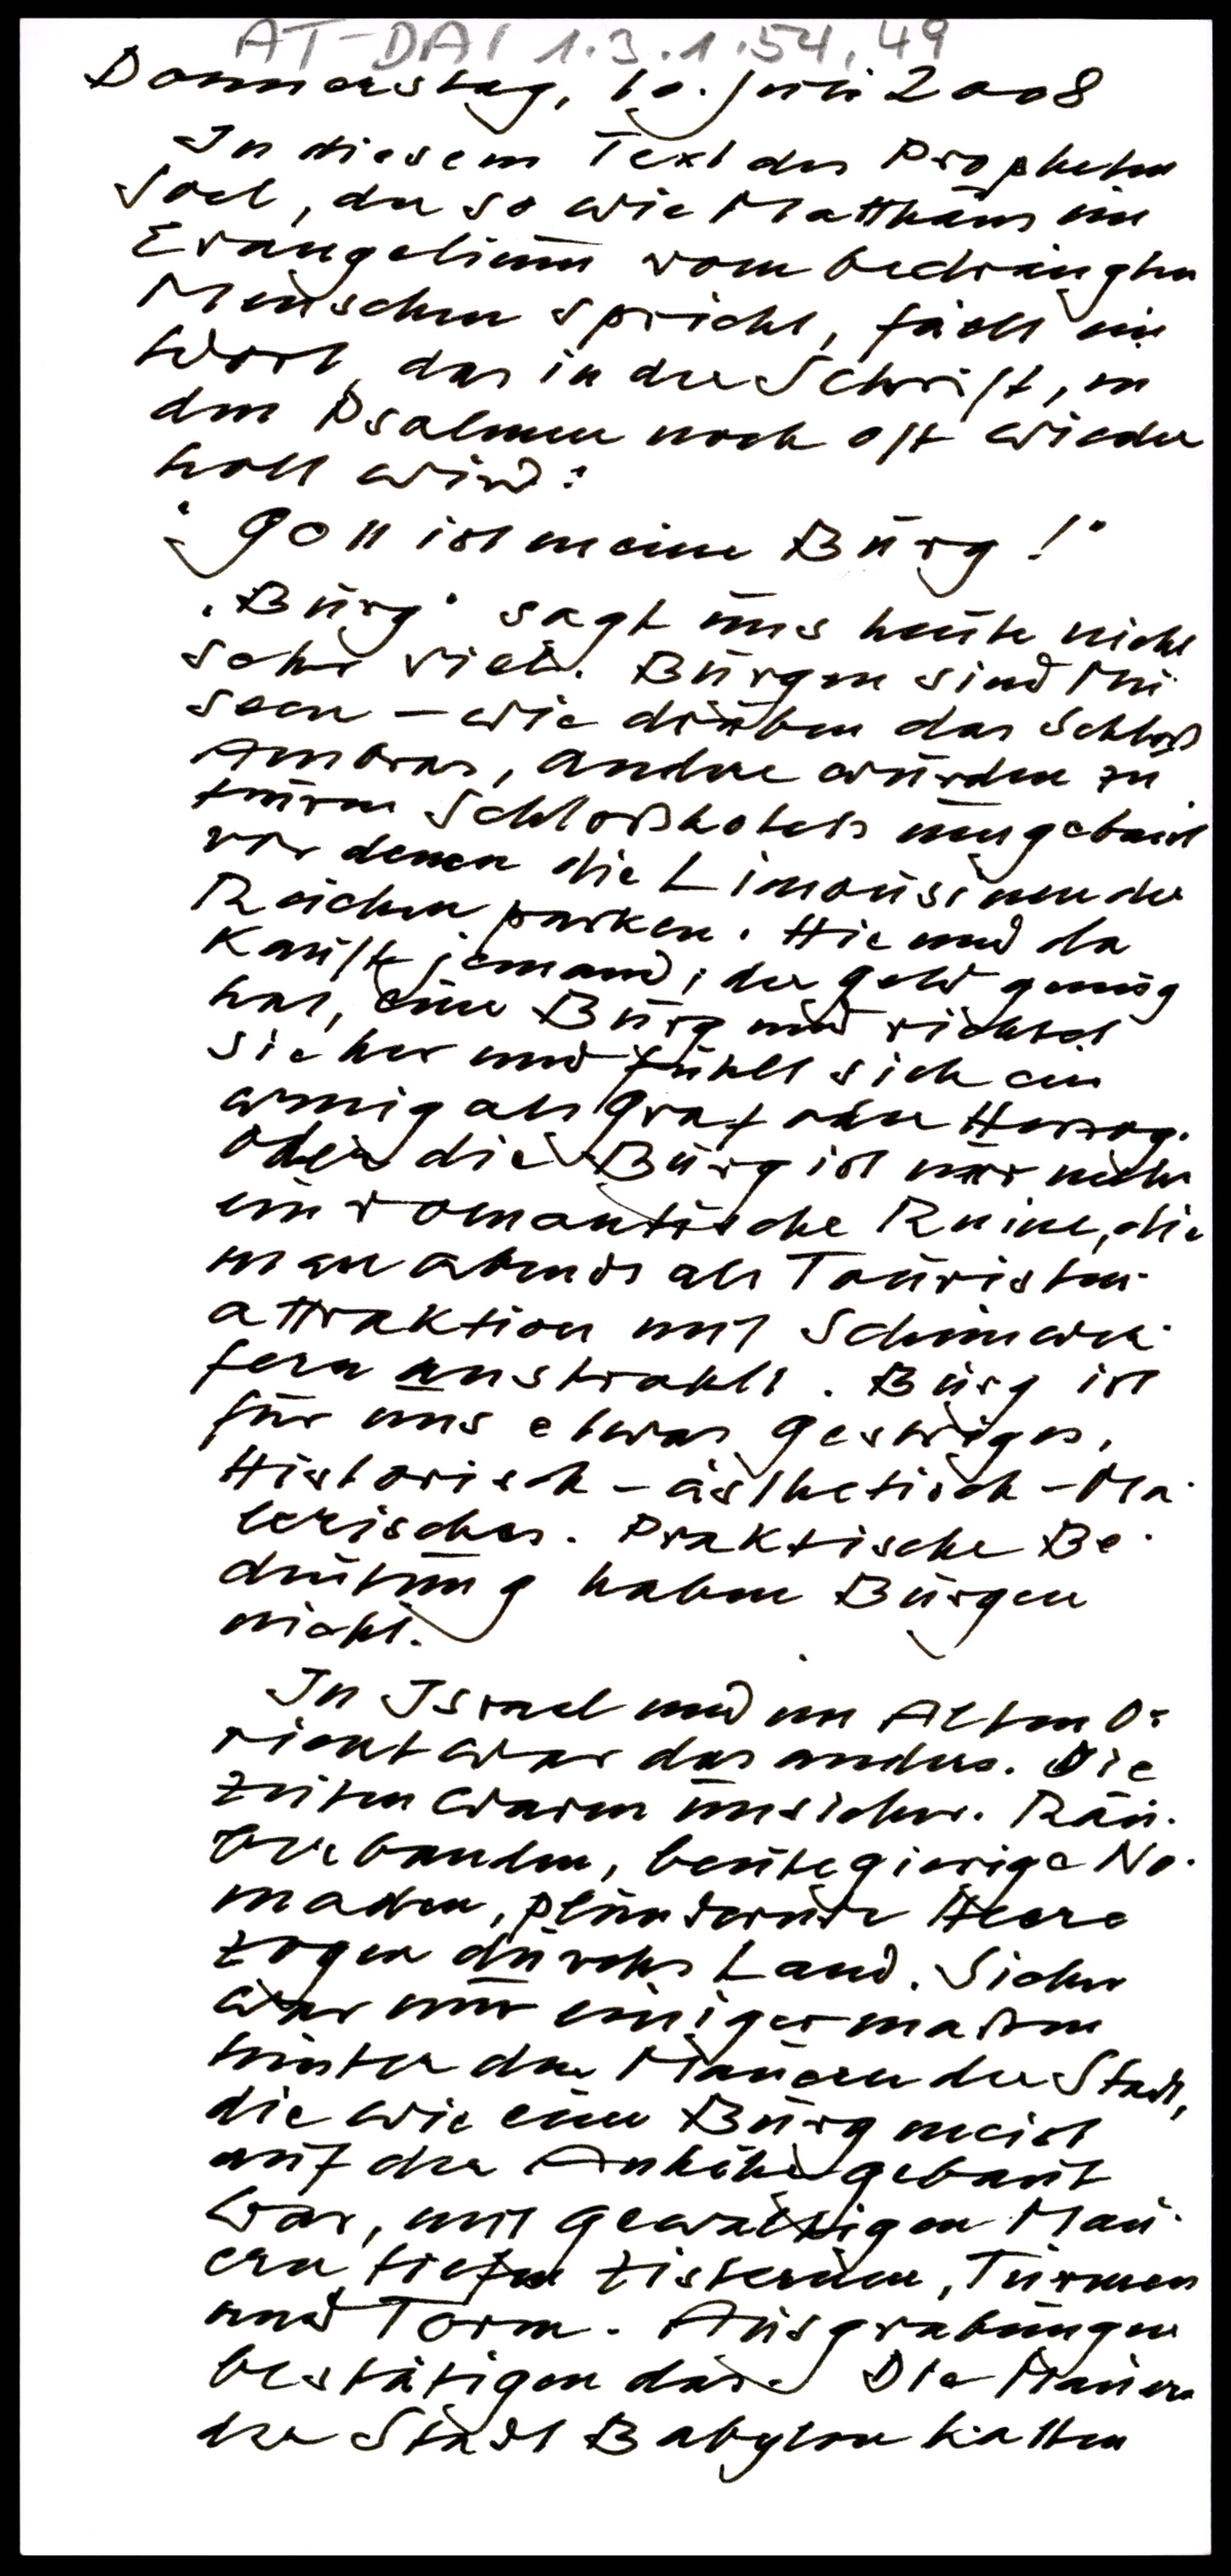 AT-DAI 1.3.1.54.49
Donnerstag, 10. Juli 2008
In diesem Text des Propheten
Joel, der so wie Matthäus im
Evangelium vom bedrängten
Menschen spricht, fällt ein
Wort, das in der Schrift, in
den Psalmen noch oft wieder
holt wird:
"Gott ist meine Burg!"
"Burg" sagt uns heute nicht
sehr viel. Burgen sind Mu-
seen – wie drüben das Schloß
Ambras, andere wurden zu
teuren Schloßhotels umgebaut
vor denen die Limousinen der
Reichen parken. Hie und da
kauft jemand, der Geld genug
hat, eine Burg und richtet
sie her und fühlt sich ein
wenig als Graf oder Herzog.
Oder die Burg ist nur mehr
ein romantische Ruine, die
man abends als Touristen-
attraktion mit Scheinwer-
fern anstrahlt. Burg ist
für uns etwas Gestriges,
Historisch-ästhetisch-Ma-
lerisches. Praktische Be-
deutung haben Burgen
nicht.
In Israel und im Alten O-
rient war das anders. Die
Zeiten waren unsicher. Räu-
berbanden, beutegierige No-
maden, plündernde Heere
zogen durchs Land. Sicher
war nur einigermaßen
hinter den Mauern der Stadt,
die wie eine Burg meist
auf der Anhöhe gebaut
war, mit gewaltigen Mau-
ern, tiefen Zisternen, Türmen
und Toren. Ausgrabungen
bestätigen das. Die Mauern
der Stadt Babylon hatten